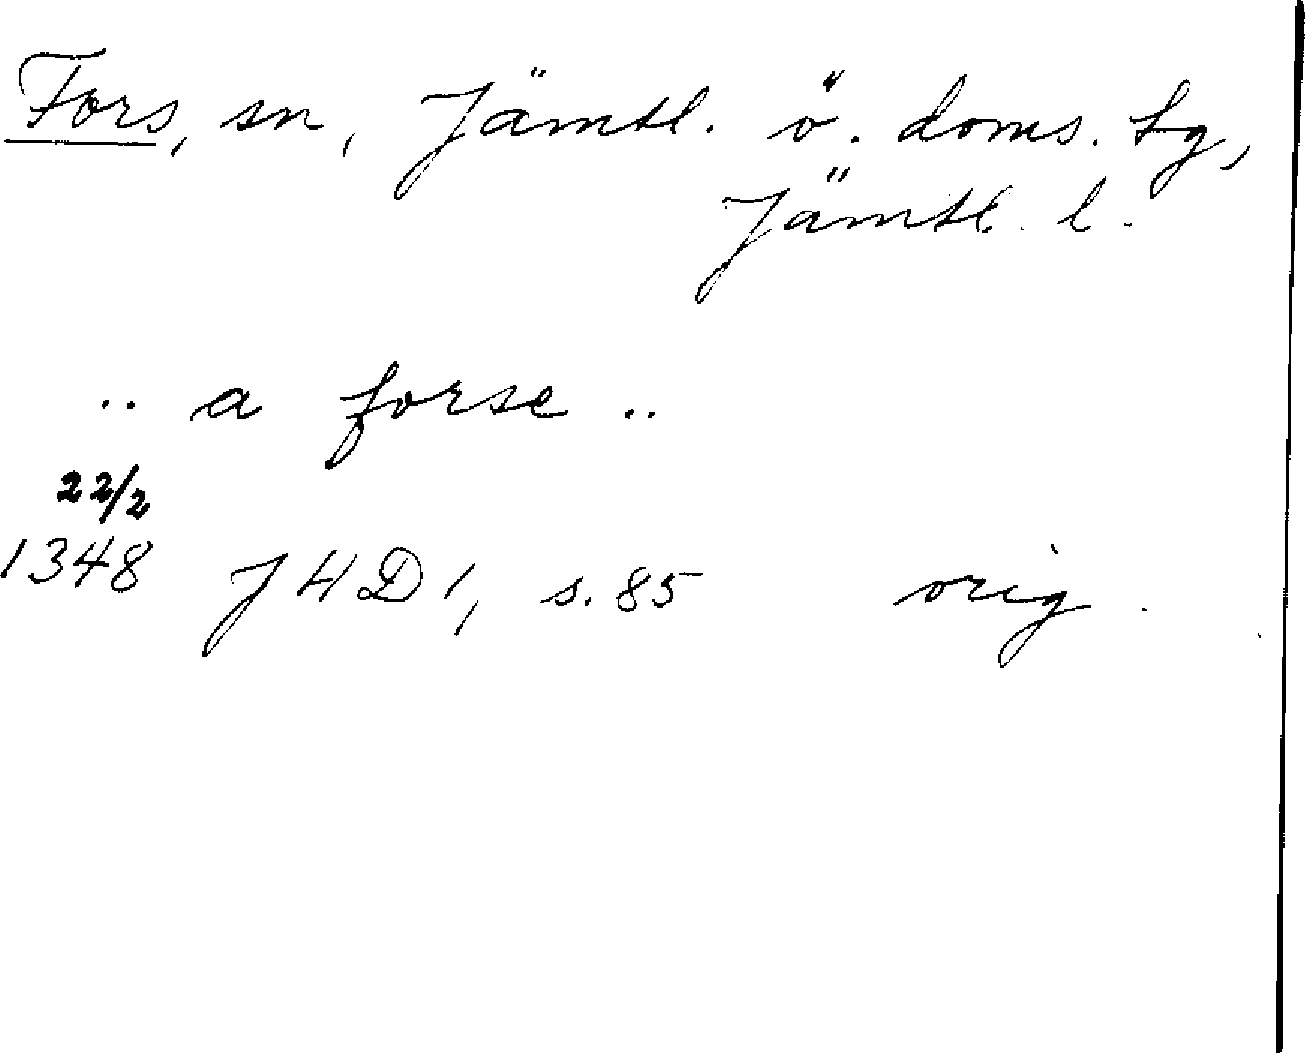 Fors, sn, Jämtl. ö. doms. tg,
Jämtl. l.
.. a forse ..
22/2
1348 J H D 1, s. 85 orig.